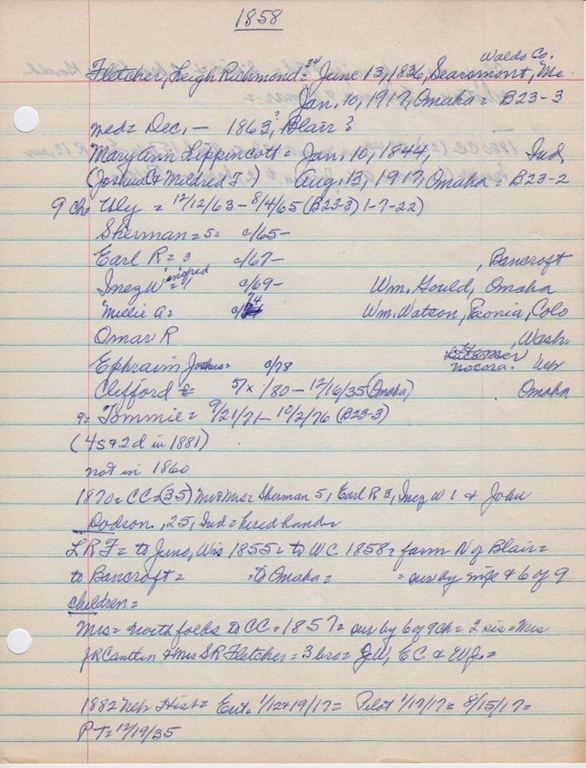 1858
Waldo Co.
Fletcher, Leigh Richmond = 34 June 13, 1836, Searsmont, Me
Jan. 10, 1917, Omaha = B23-3
med = Dec. — 1863, Blair?
Mary Ann Lippincott = Jan. 10, 1844, Ind
(Joshua & Mildred F.) Aug. 13, 1917, Omaha = B23-2
9 ch Uly = 12/12/63 - 8/4/65 (B23-3) 1-7-22)
Sherman = 5 = c/65 -
Earl R = 3 c/67 - , Bancroft
Inez W = 1 c/69 - Wm. Gould, Omaha
Millie A = c/74 Wm. Watson, Paonia, Colo
Omar R , Wash.
Ephraim Joshua = c/78 Nocora. Neb
Clifford E = 5/x/80 - 12/16/35 (Omaha) Omaha
Tommie = 9/21/71 - 10/2/76 (B23-3)
(4s & 2d in 1881)
not in 1860
1870 = CC = (35) Mr & Mrs = Sherman 5, Earl R 3, Inez W 1 & John
Dodson, 25, Ind = hired hand =
L R F = to Wis 1855 = to WC 1858 = farm N of Blair =
to Bancroft = : To Omaha = = sur by wife & 6 of 9
children =
Mrs = with folks to CC = 1857 = sur by 6 of 9 ch = 2 sis = Mrs
J R Cantlin & Mrs S R Fletcher = 3 bro = J W, E C & W J =
1882 Neb Hist = Ent. 1/12 & 19/17 = Pilot 1/17/17 = 8/15/17 =
P T = 12/19/35